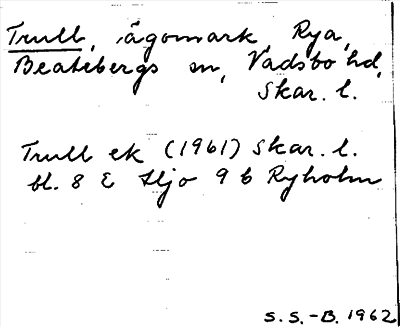 Trull, ägomark Rya,
Beatebergs sn, Vadsbo hd,
Skar. l.
Trull ek (1961) Skar. l.
bl. 8 E Hjo 9 b Ryholm
S. S.-B. 1962